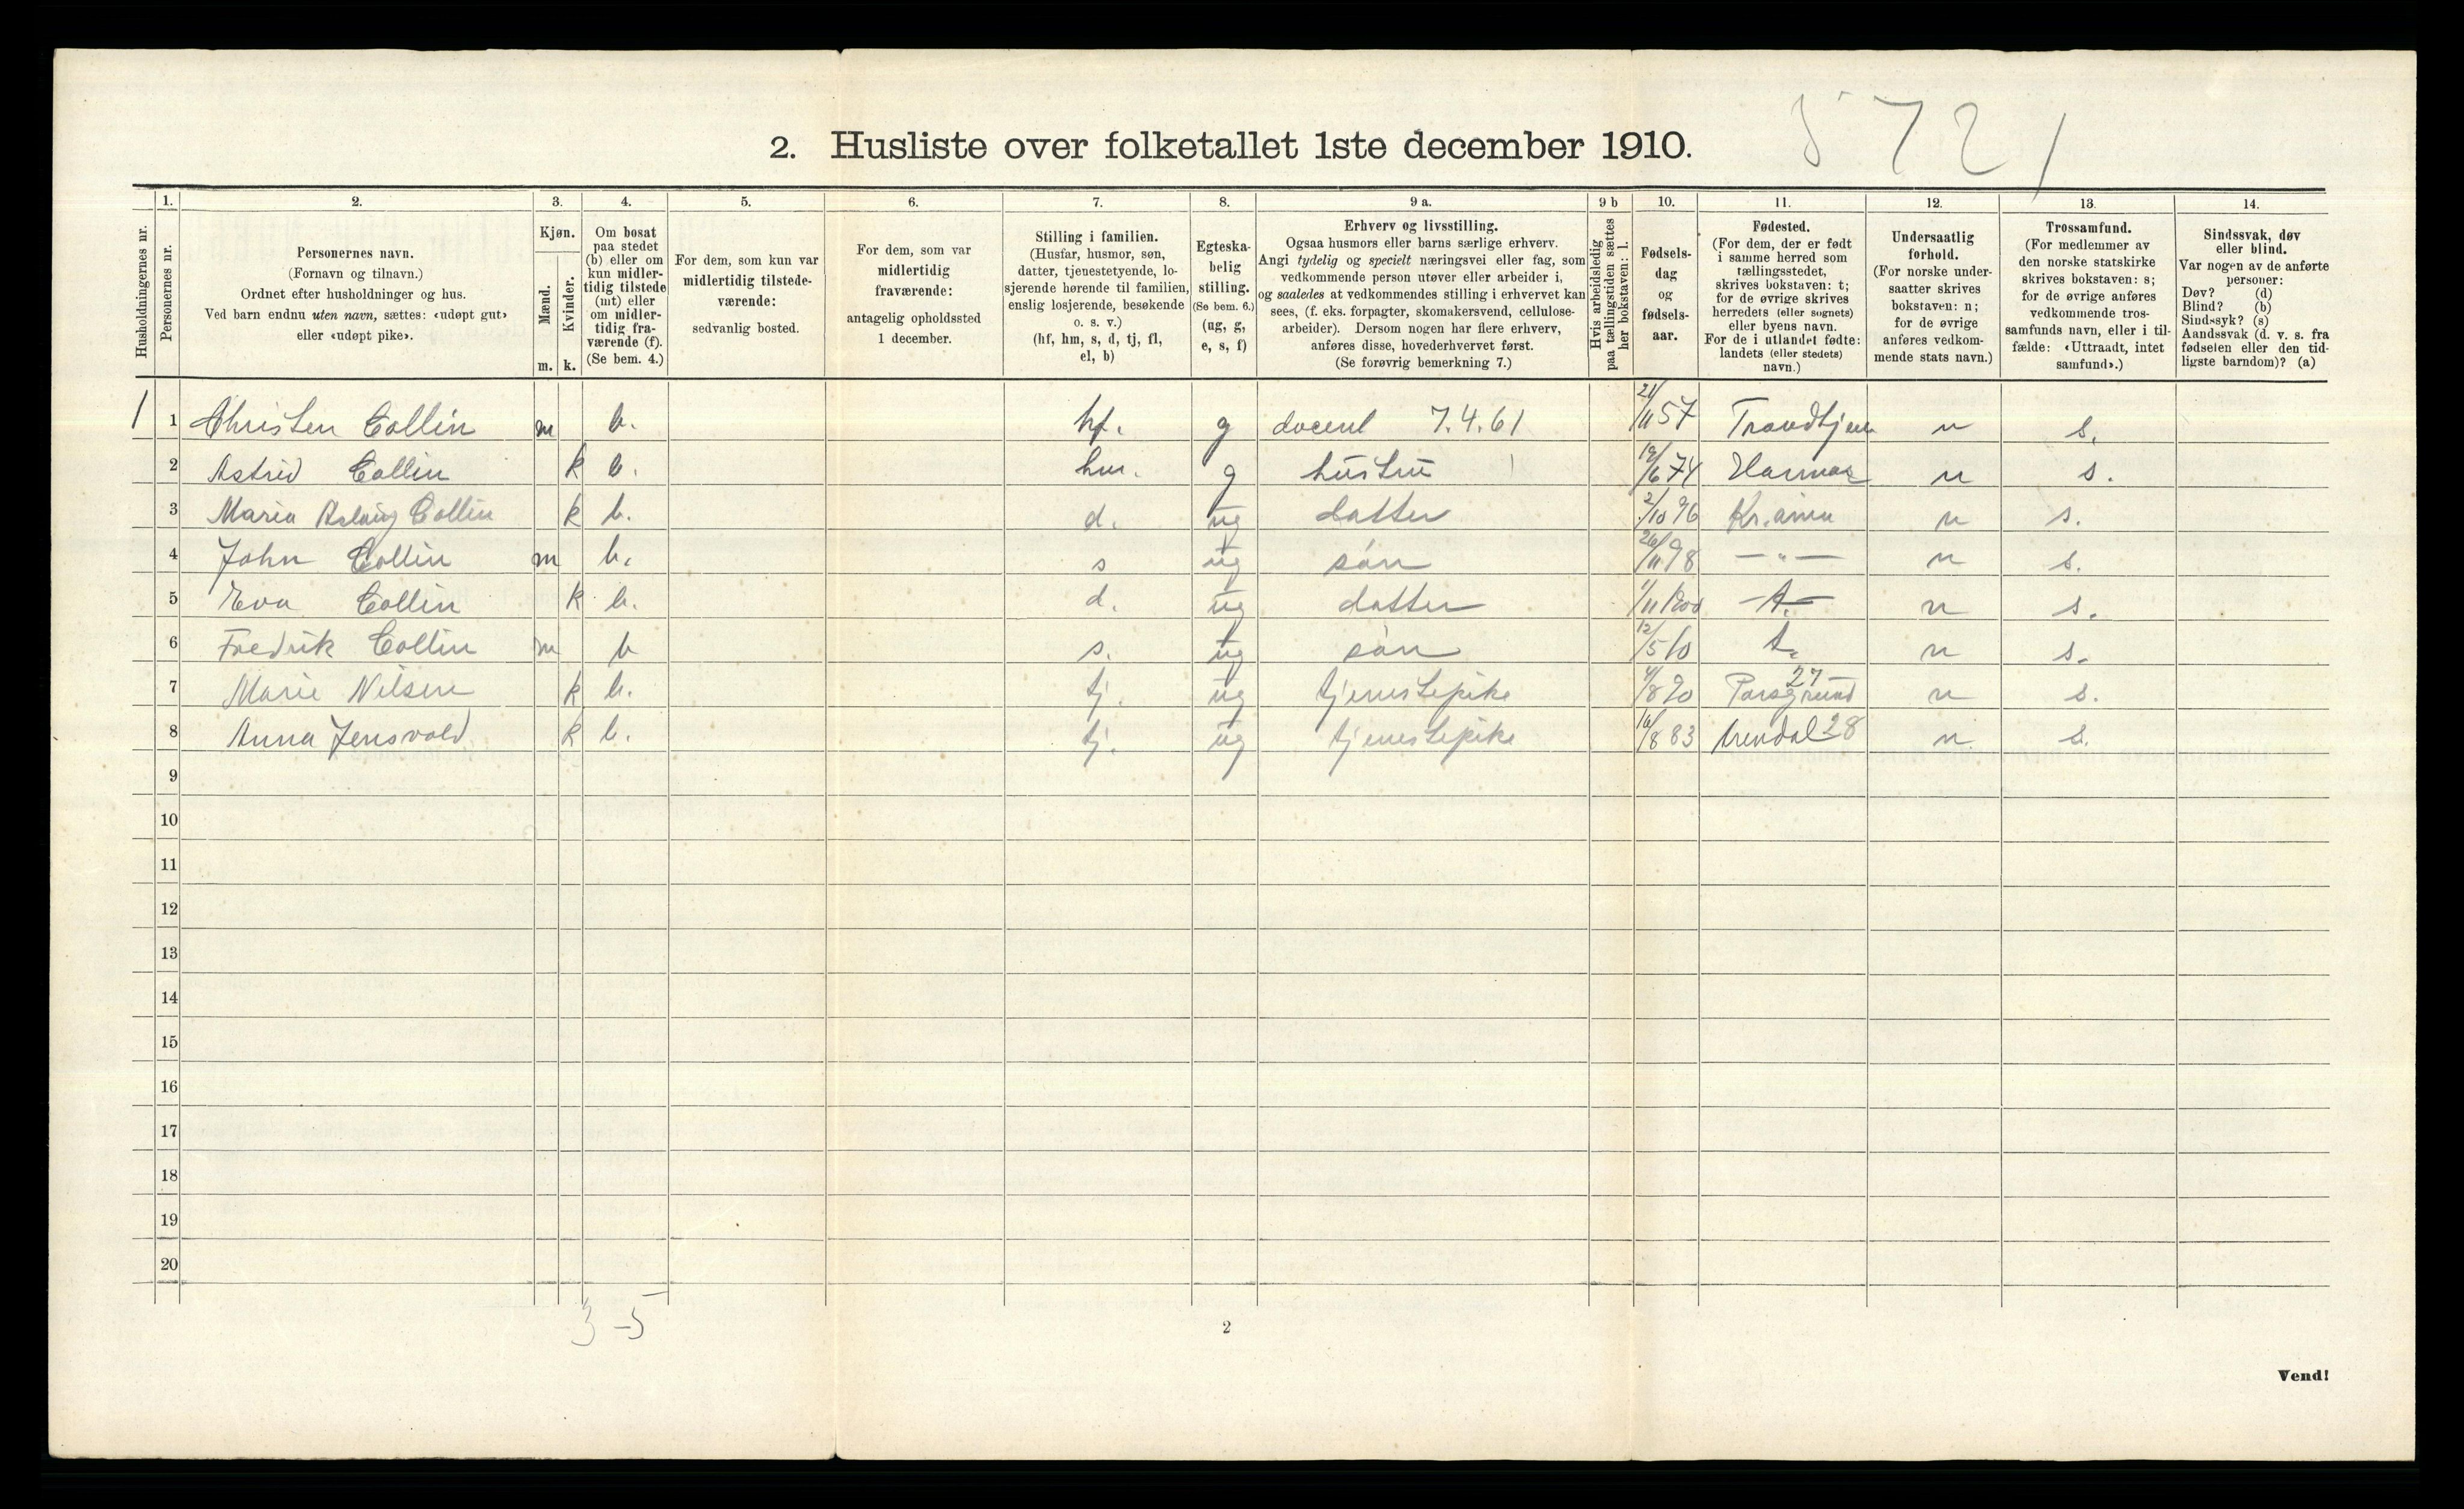 5721
2. Husliste over folketallet 1ste december 1910.
Husholdningernes nr.
1.
Personernes nr.
2.
Personernes navn.
(Fornavn og tilnavn.)
Ordnet efter husholdninger og hus.
Ved barn endnu uten navn, sættes: «udøpt gut»
eller «udøpt pike».
3.
Kjøn.
Mænd.
Kvinder.
m. k.
4.
Om bosat
paa stedet
(b) eller om
kun midler-
tidig tilstede
(mt) eller
om midler-
tidig fra-
værende (f).
(Se bem. 4.)
5.
For dem, som kun var
midlertidig tilstede-
værende:
sedvanlig bosted.
6.
For dem, som var
midlertidig
fraværende:
antagelig opholdssted
1 december.
7.
Stilling i familien.
(Husfar, husmor, søn,
datter, tjenestetyende, lo-
sjerende hørende til familien,
enslig losjerende, besøkende
o. s. v.)
(hf, hm, s, d, tj, fl,
el, b)
8.
Egteska-
belig
stilling.
(Se bem. 6.)
(ug, g,
e, s, f)
9 a.
Erhverv og livsstilling.
Ogsaa husmors eller barns særlige erhverv.
Angi tydelig og specielt næringsvei eller fag, som
vedkommende person utøver eller arbeider i,
og saaledes at vedkommendes stilling i erhvervet kan
sees, (f. eks. forpagter, skomakersvend, cellulose-
arbeider). Dersom nogen har flere erhverv,
anføres disse, hovederhvervet først.
(Se forøvrig bemerkning 7.)
9 b
Hvis arbeidsledig
paa tællingstiden sættes
her bokstaven: l.
10.
Fødsels-
dag
og
fødsels-
aar.
11.
Fødested.
(For dem, der er født
i samme herred som
tællingsstedet,
skrives bokstaven: t;
for de øvrige skrives
herredets (eller sognets)
eller byens navn.
For de i utlandet fødte:
landets (eller stedets)
navn.)
12.
Undersaatlig
forhold.
(For norske under-
saatter skrives
bokstaven: n;
for de øvrige
anføres vedkom-
mende stats navn.)
13.
Trossamfund.
(For medlemmer av
den norske statskirke
skrives bokstaven: s;
for de øvrige anføres
vedkommende tros-
samfunds navn, eller i til-
fælde: «Uttraadt, intet
samfund».)
14.
Sindssvak, døv
eller blind.
Var nogen av de anførte
personer:
Døv? (d)
Blind? (b)
Sindssyk? (s)
Aandssvak (d. v. s. fra
fødselen eller den tid-
ligste barndom)? (a)
1 1 Christen Collin m b. hf. g docent 7.4.61 21/11 57 Trondhjem n s.
2 Astrid Collin k b. hm. g hustru 19/6 74 Hamar n s.
3 Maria Aslaug Collin k b. d. ug datter 2/10 96 Kr.ania n s.
4 John Collin m b. s ug søn 26/11 98 — " — n s.
5 Eva Collin k b. d. ug datter 1/11 1900 t. n s.
6 Fredrik Collin m b s. ug søn 12/5 10 t. n s.
7 Marie Nilsen k b. tj. ug tjenestepike 4/8 90 Porsgrund 27 n s.
8 Anna Jensvold k b. tj. ug tjenestepike 16/8 83 Arendal 28 n. s.
9
10
11
12
13
14
15
16
17
18
19
20
3-5
2
Vend!